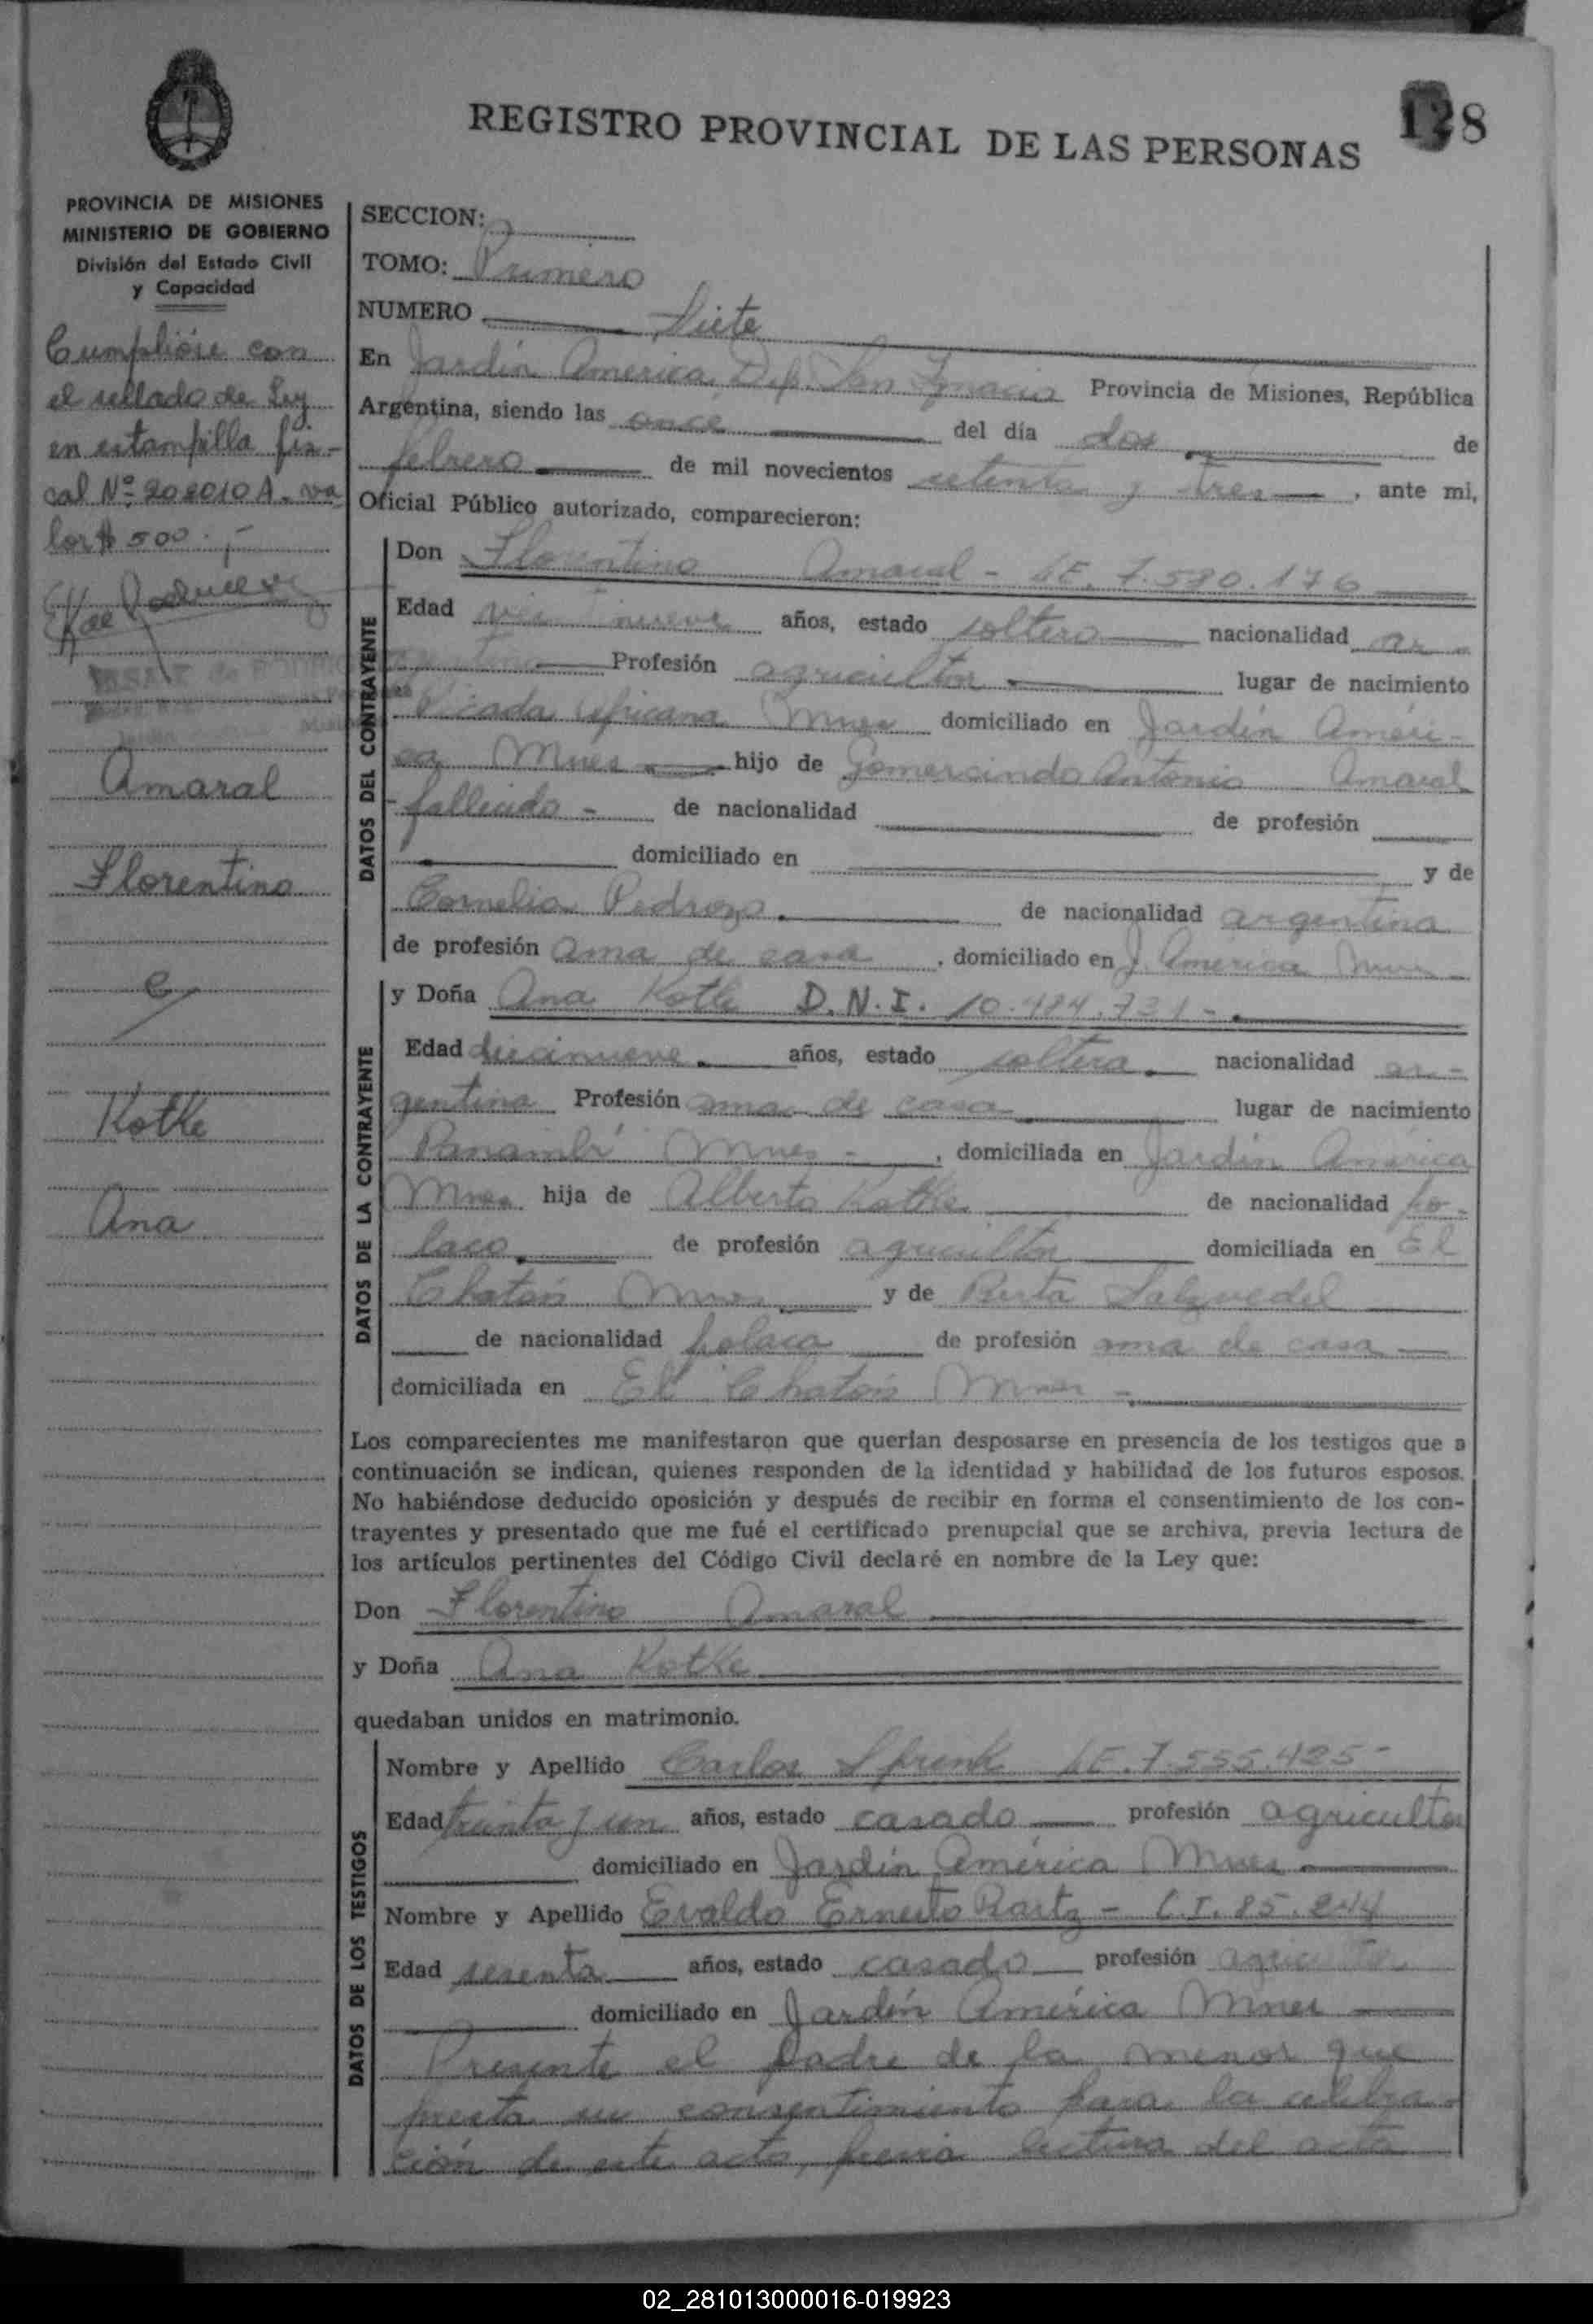 128
REGISTRO PROVINCIAL DE LAS PERSONAS
PROVINCIA DE MISIONES
MINISTERIO DE GOBIERNO
División del Estado Civil
y Capacidad
Cumplióse con
el sellado de Ley
en estampilla fis-
cal Nº 202010 A. va
lor $ 500.-
Amaral
Florentino
e
Kotke
Ana
SECCION:
TOMO: Primero
NUMERO Siete
En Jardín America, Dep. San Ignacio Provincia de Misiones, República
Argentina, siendo las once del día dos de
febrero de mil novecientos setenta y tres, ante mi,
Oficial Público autorizado, comparecieron:
DATOS DEL CONTRAYENTE
Don Florentino Amaral - LE. 7.580.176
Edad veintinueve años, estado soltero nacionalidad ar-
gentina Profesión agricultor lugar de nacimiento
Picada Africana Mnes domiciliado en Jardín Améri-
ca Mnes hijo de Gomercindo Antonio Amaral
-fallecido- de nacionalidad de profesión
domiciliado en y de
Cornelia Pedrozo. de nacionalidad argentina
de profesión ama de casa, domiciliado en J. America Mnes
DATOS DE LA CONTRAYENTE
y Doña Ana Kotke D.N.I. 10.484.731-.
Edad diecinueve. años, estado soltera. nacionalidad ar-
gentina Profesión ama de casa lugar de nacimiento
Panambí Mnes -, domiciliada en Jardín América
Mnes hija de Alberto Kotke de nacionalidad po-
laco. de profesión agricultor domiciliada en El
Chatón Mnes y de Berta Salzvedel
de nacionalidad polaca de profesión ama de casa
domiciliada en El Chatón Mnes -.
Los comparecientes me manifestaron que querían desposarse en presencia de los testigos que a
continuación se indican, quienes responden de la identidad y habilidad de los futuros esposos.
No habiéndose deducido oposición y después de recibir en forma el consentimiento de los con-
trayentes y presentado que me fué el certificado prenupcial que se archiva, previa lectura de
los artículos pertinentes del Código Civil declaré en nombre de la Ley que:
Don Florentino Amaral
y Doña Ana Kotke
quedaban unidos en matrimonio.
DATOS DE LOS TESTIGOS
Nombre y Apellido Carlos Sprenk LE. 7.555.425-
Edad treinta y un años, estado casado profesión agricultor
domiciliado en Jardín América Mnes
Nombre y Apellido Evaldo Ernesto Raatz - C.I. 85.244
Edad sesenta años, estado casado profesión agricultor
domiciliado en Jardín América Mnes
Presente el padre de la menor que
presta su consentimiento para la celebra-
ción de este acto, previa lectura del acta
02_281013000016-019923